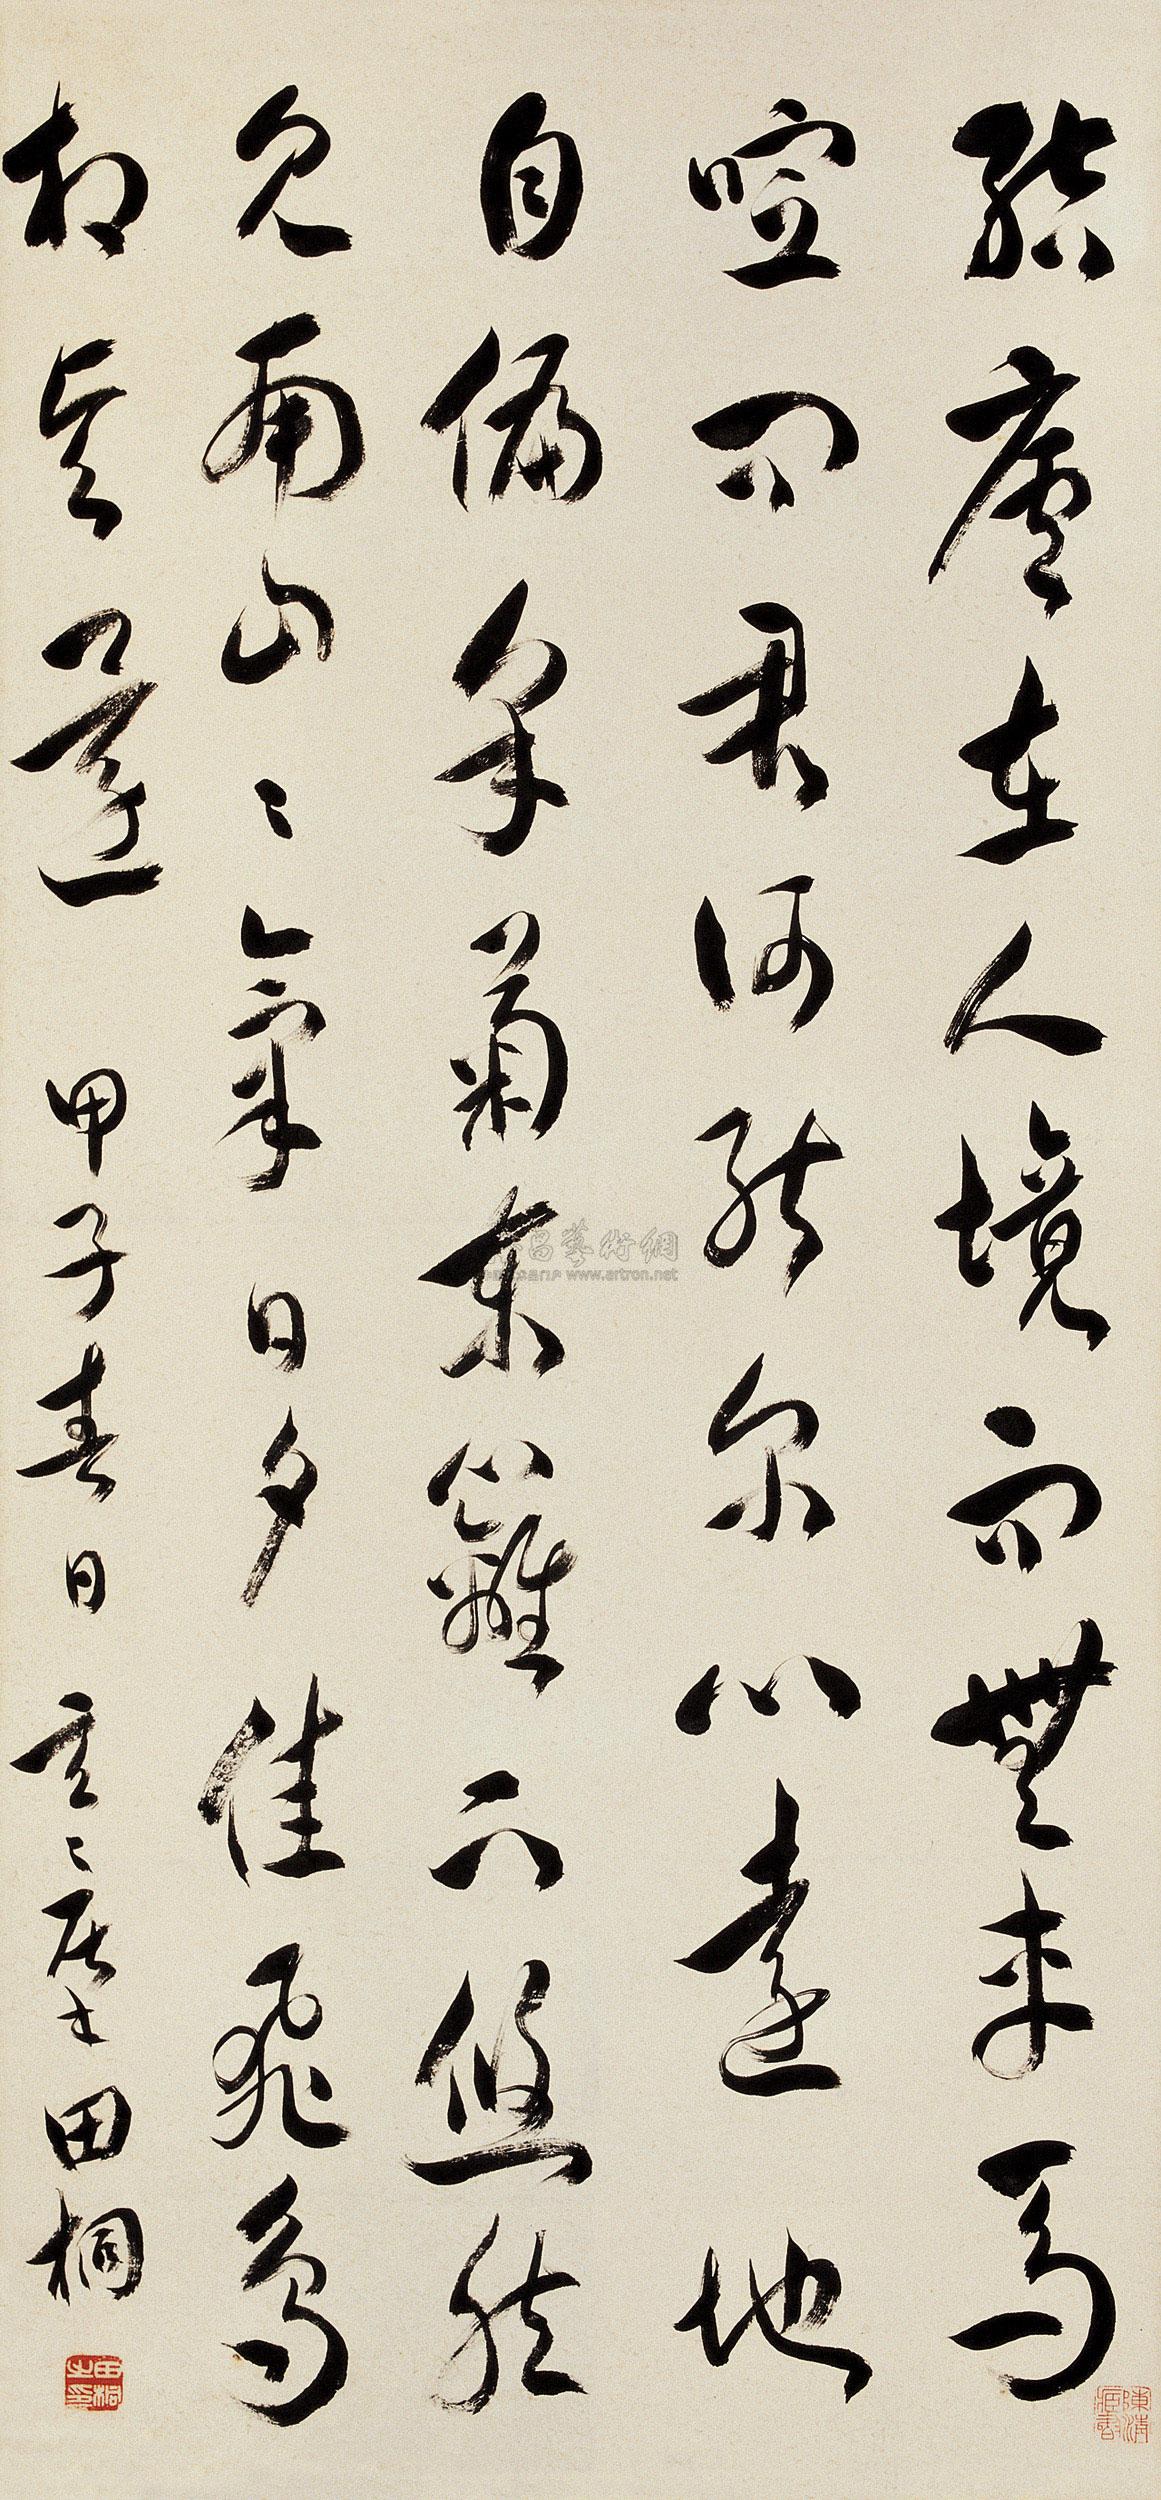 結廬在人境而無車馬
喧問君何能尔心遠地
自偏采菊東籬下悠然
見南山〻氣日夕佳飛鳥
相與還 甲子春日 玄〻居士田桐
田桐之印
昌藝術網
www.artron.net